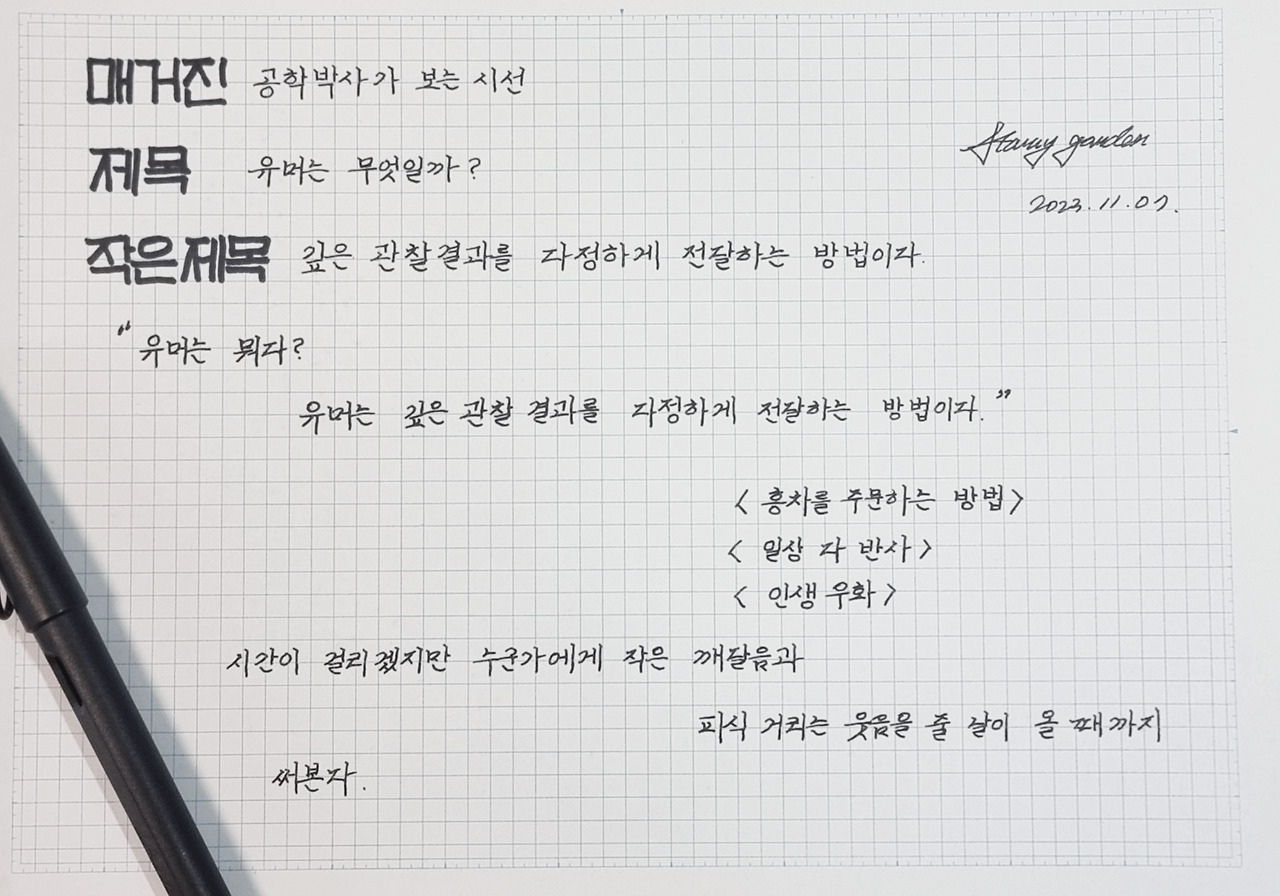 매거진 공학박사가 보는 시선
Starry garden
제목 유머는 무엇일까?
2023.11.07.
작은제목 깊은 관찰결과를 다정하게 전달하는 방법이다.
"유머는 뭐다?
유머는 깊은 관찰 결과를 다정하게 전달하는 방법이다."
<홍차를 주문하는 방법>
<일상 다 반사>
<인생 우화>
시간이 걸리겠지만 누군가에게 작은 깨달음과
피식 거리는 웃음을 줄 날이 올 때까지
써본다.